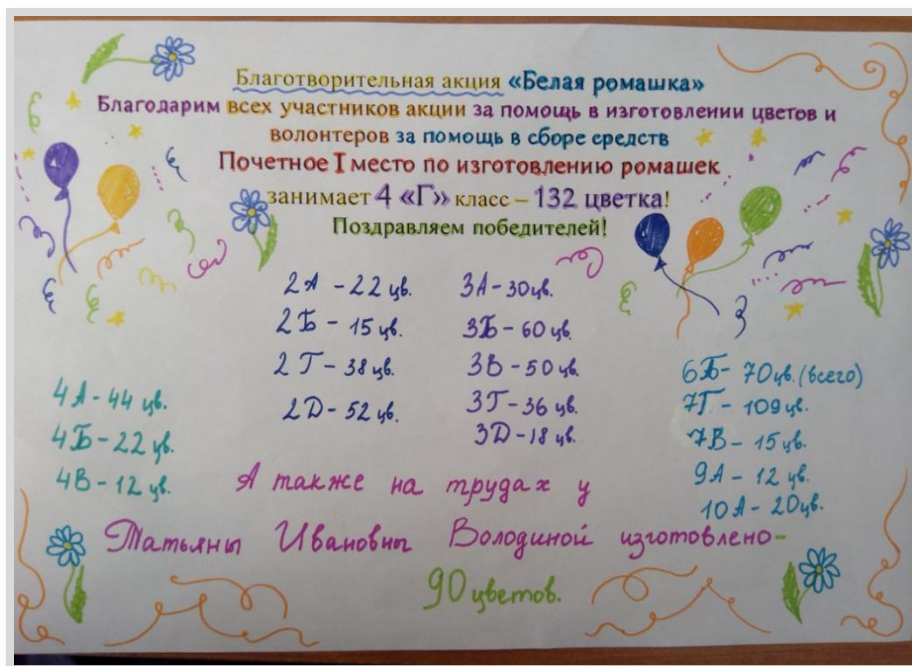 Благотворительная акция «Белая ромашка»
Благодарим всех участников акции за помощь в изготовлении цветов и
волонтеров за помощь в сборе средств
Почетное I место по изготовлению ромашек
занимает 4 «Г» класс – 132 цветка!
Поздравляем победителей!
2А - 22 цв.
2Б - 15 цв.
2Г - 38 цв.
2Д - 52 цв.
3А - 30 цв.
3Б - 60 цв.
3В - 50 цв.
3Г - 36 цв.
3Д - 18 цв.
4А - 44 цв.
4Б - 22 цв.
4В - 12 цв.
6Б - 70 цв. (всего)
7Г - 109 цв.
7В - 15 цв.
9А - 12 цв.
10А - 20 цв.
А также на трудах у
Татьяны Ивановны Володиной изготовлено -
90 цветов.